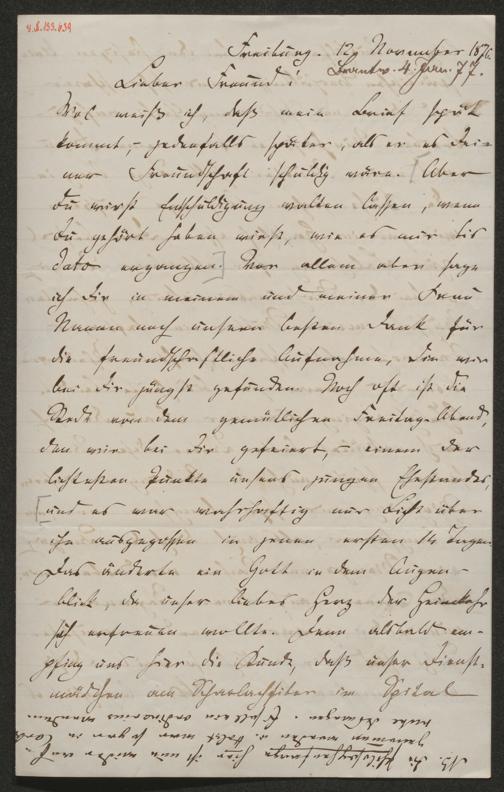 Freiburg. 12. November 1876.
Beantw. 4. Jan. 77.
Lieber Freund!
Wol weiß ich, daß mein Brief spät
kommt, – jedenfalls später, als er es Dei-
ner Freundschaft schuldig wäre. [Aber
Du wirst Entschuldigung walten lassen, wenn
Du gehört haben wirst, wie es mir bis
dato ergangen.] Vor allem aber sage
ich Dir in meinem und meiner Frau
Namen noch unsern besten Dank für
die freundschaftliche Aufnahme, die wir
bei Dir jüngst gefunden. Noch oft ist die
Rede von dem gemütlichen Freitag-Abend,
den wir bei Dir gefeiert, – einem der
lichtesten Punkte unsers jungen Ehestandes,
[und es war wahrhaftig nur Licht über
ihn ausgegossen in jenen ersten 14 Tagen.
Das änderte ein Gott in dem Augen-
blick, da unser liebes Herz der Heimkehr
sich erfreuen wollte. Denn alsbald em-
pfing uns hier die Kunde, daß unser Dienst-
mädchen am Scharlachfieber im Spital